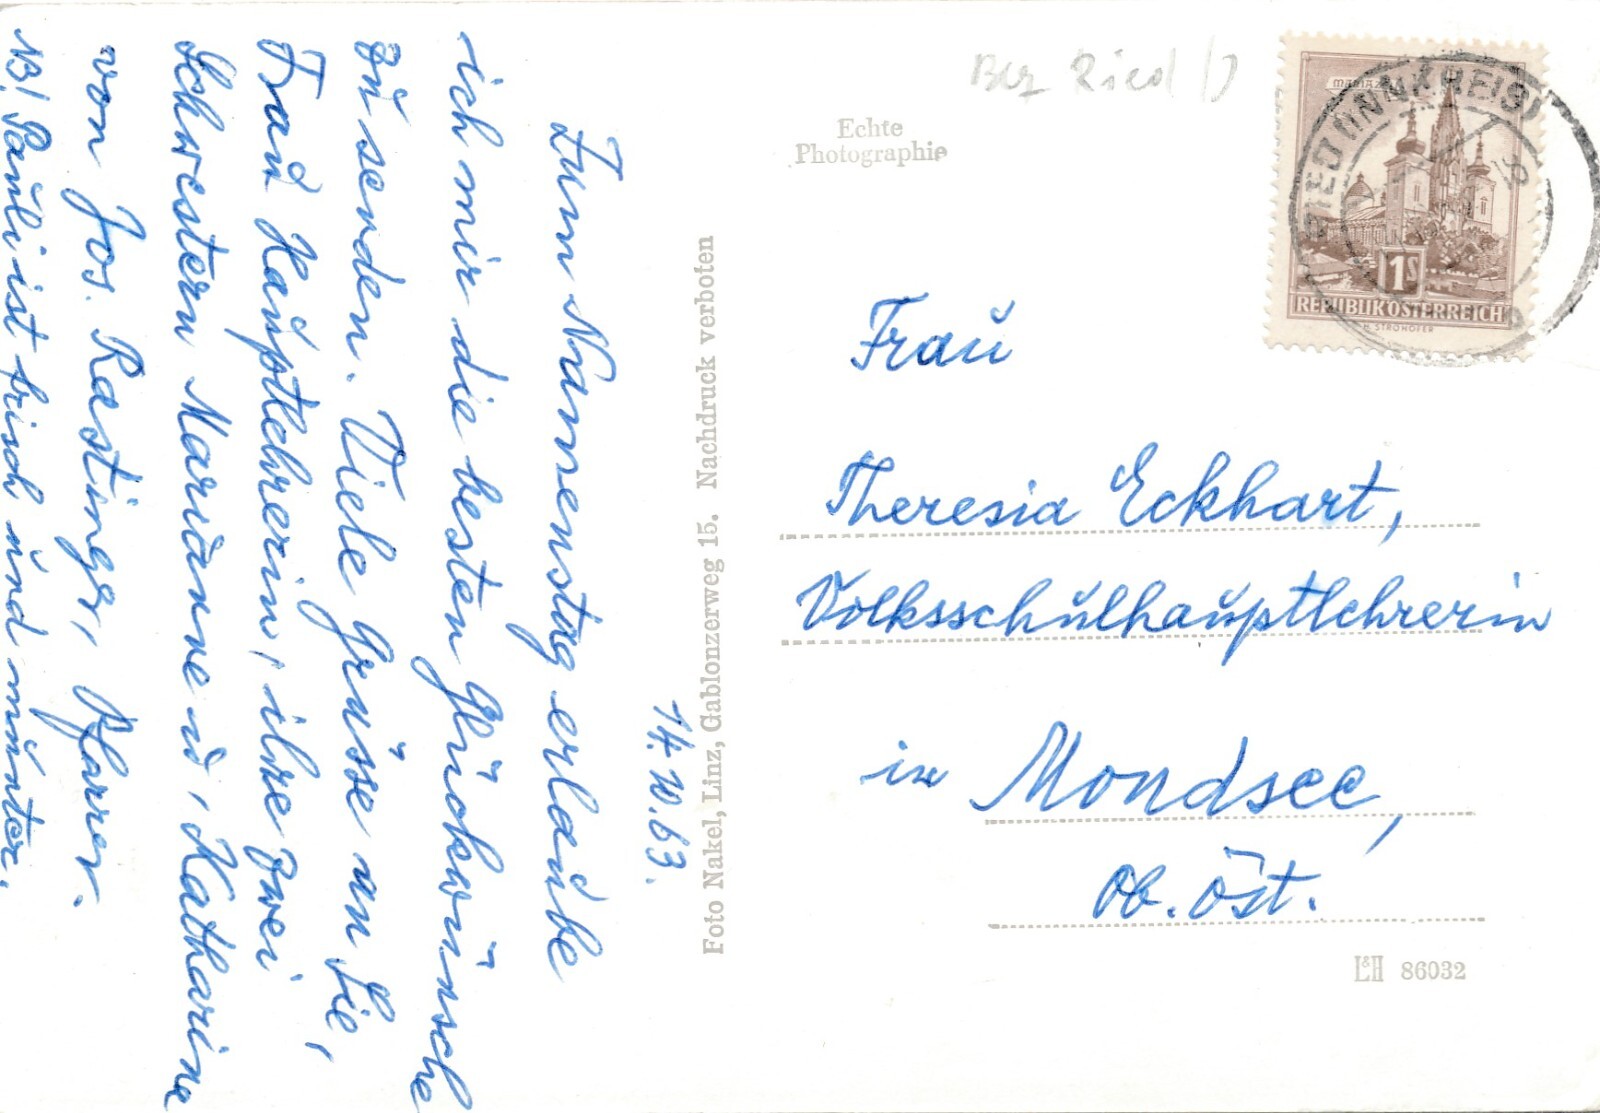 14. 10. 63.
Zum Namenstag erlaube
ich mir die besten Glückwünsche
zu senden. Viele Grüsse an Sie,
Frau Hauptlehrerin, ihre zwei
Schwestern Marianne u. Katharina
von Jos. Rastinger, Pfarrer.
NB! Pauli ist frisch und munter.
Foto Nakel, Linz, Gablonzerweg 15. Nachdruck verboten
Bez Ried /
Echte
Photographie
MARIAZELL
1S
REPUBLIK ÖSTERREICH
H. STROHOFER
RIED (INNKREIS)
Frau
Theresia Eckhart,
Volksschulhauptlehrerin
in Mondsee,
Ob. Öst.
L&H 86032